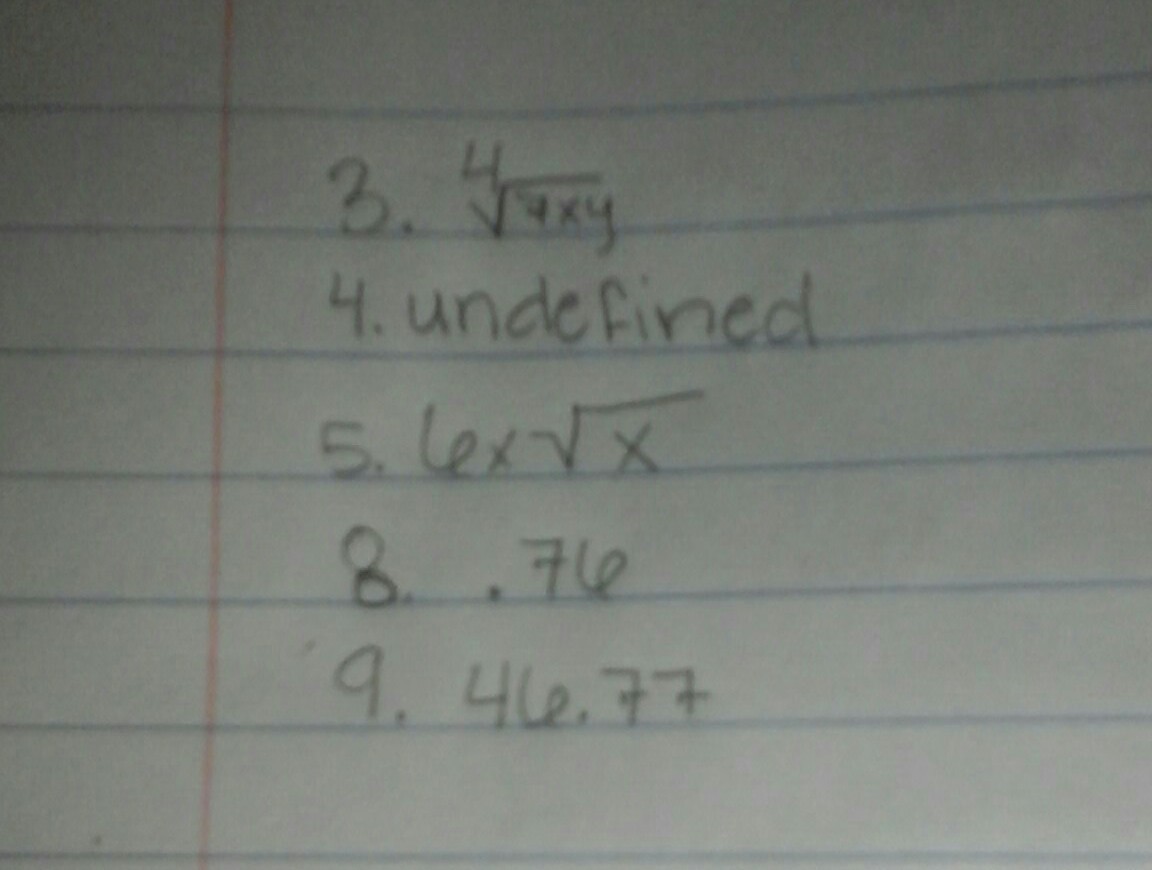 3. ∜7xy
4. undefined
5. 6x√x
8. .76
9. 46.77